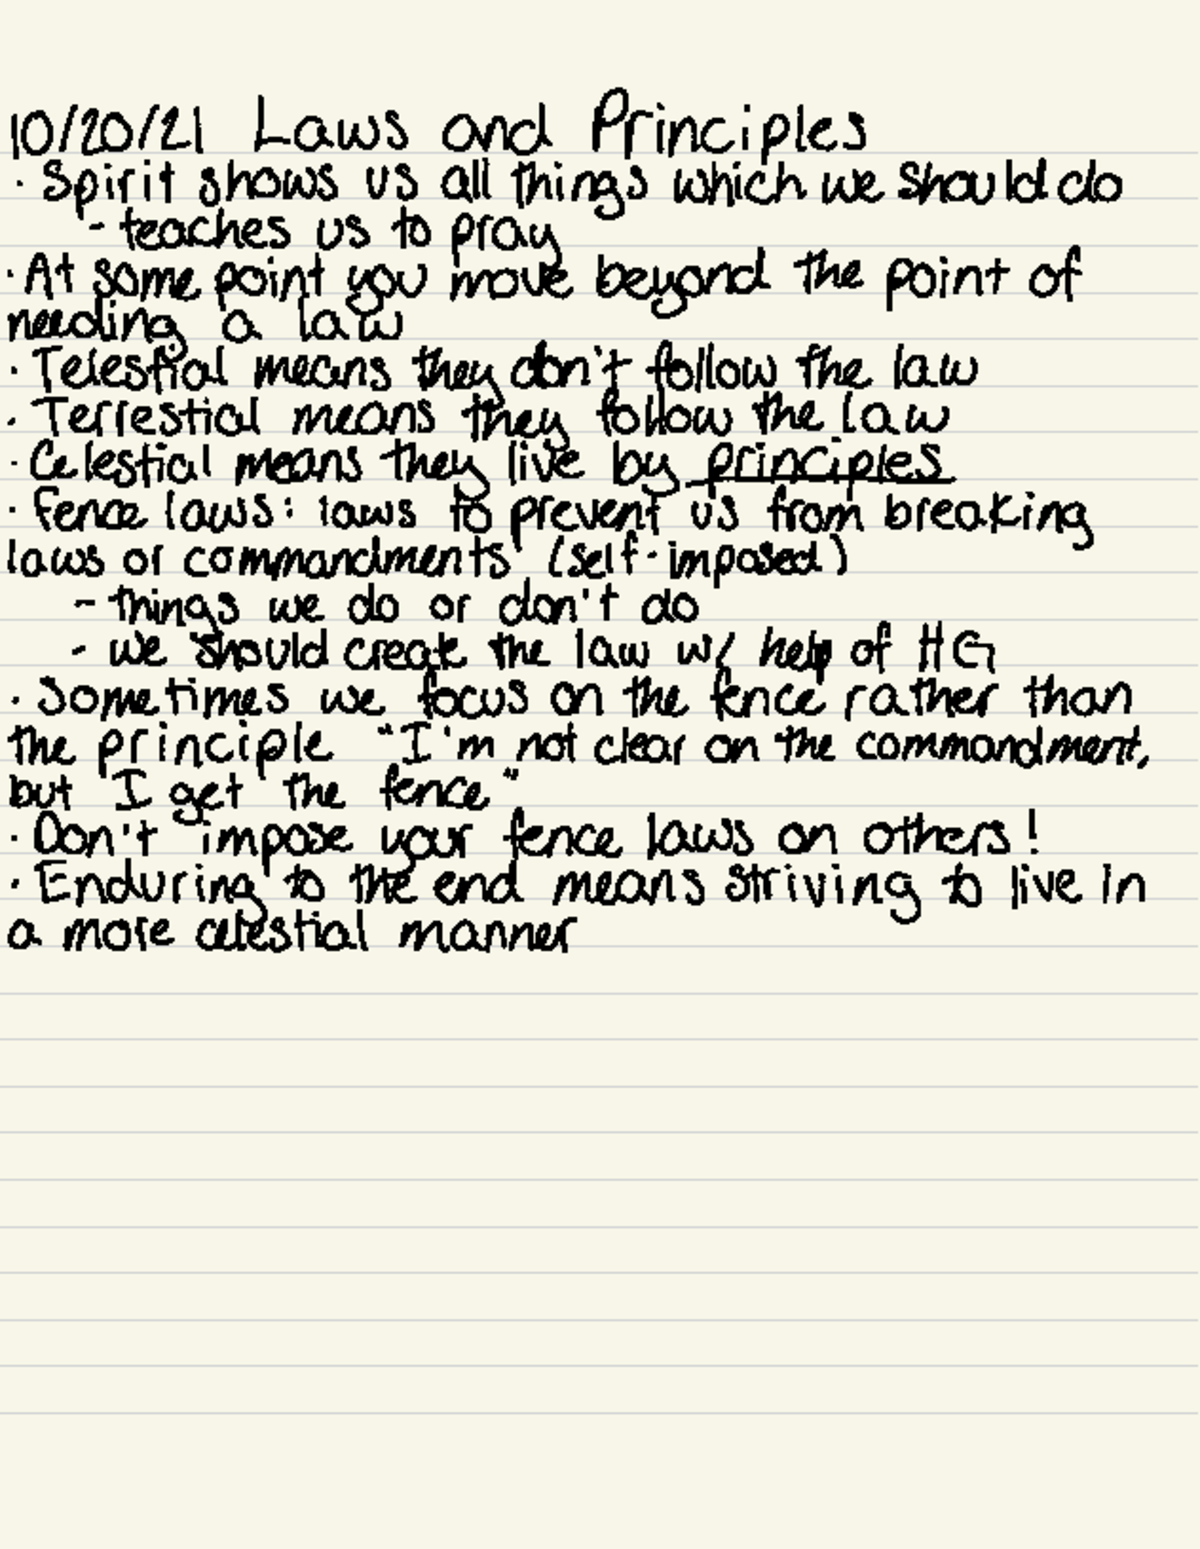 10/20/21 Laws and Principles
· Spirit shows us all things which we should do
- teaches us to pray
· At some point you move beyond the point of
needing a law
· Telestial means they don't follow the law
· Terrestial means they follow the law
· Celestial means they live by principles
· Fence laws: laws to prevent us from breaking
laws or commandments (self-imposed)
- things we do or don't do
- we should create the law w/ help of HG
· Sometimes we focus on the fence rather than
the principle "I'm not clear on the commandment,
but I get the fence"
· Don't impose your fence laws on others!
· Enduring to the end means striving to live in
a more celestial manner